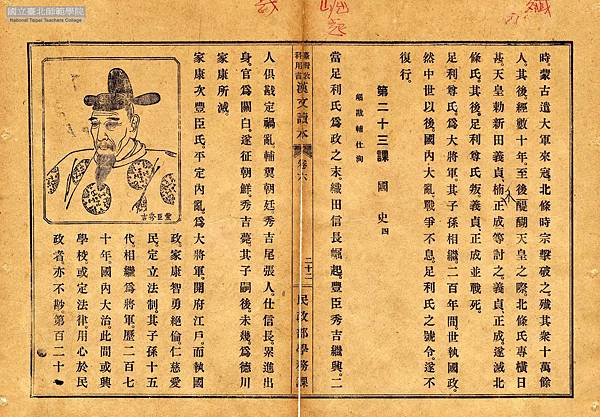 國立臺北師範學院
National Taipei Teachers College
時。蒙古遣大軍來寇。北條時宗擊破之。殲其衆十萬餘
人。其後經數十年至後醍醐天皇之際。北條氏專橫日
甚。天皇勅新田義貞楠正成等討之。義貞、正成遂滅北
條氏。其後。足利尊氏叛。義貞、正成並戰死。
足利尊氏爲大將軍。其子孫相繼二百年間世執國政。
然中世以後。國內大亂戰爭不息。足利氏之號令。遂不
復行。
第二十三課 國史 四
戡輔仕
當足利氏爲政之末。織田信長起。豐臣秀吉繼興。二
臺灣教科用書漢文讀本 卷六 二十二 民政部學務課
人俱戡定禍亂輔翼朝廷秀吉尾張人。仕信長。累進出
身官爲關白。遂征朝鮮秀吉薨。其子嗣後。未幾。爲德川
家康所滅。
家康次豐臣氏。平定內亂。爲大將軍。開府江戶。而執國
政。家康智勇絕倫仁慈愛
民。定立法制。其子孫十五
代相繼爲將軍。歷二百七
十年。國內大治。此間或興
學校或定法律。用心於民
政者亦不尠第百二十一
吉秀臣豐